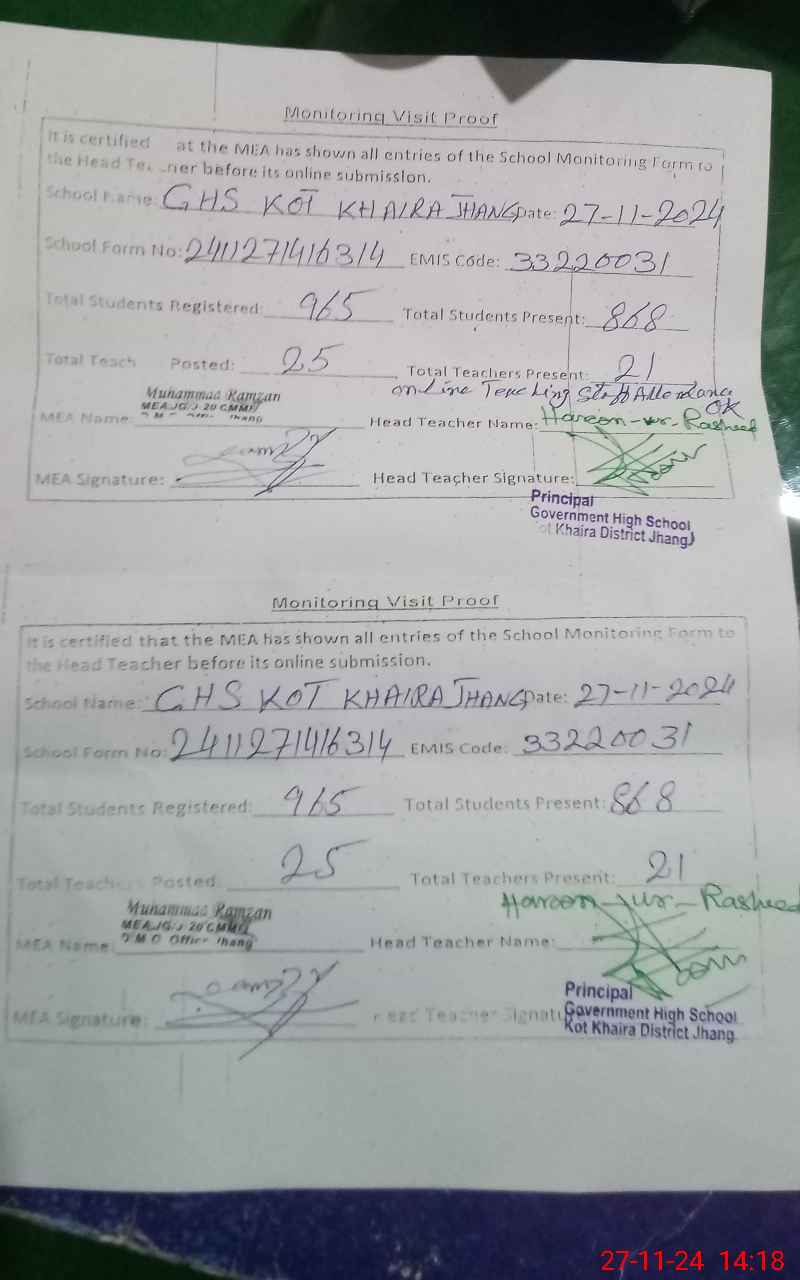 Monitoring Visit Proof
It is certified at the MEA has shown all entries of the School Monitoring Form to
the Head Te ner before its online submission.
School Name: GHS KOT KHAIRA JHANG Date: 27-11-2024
School Form No: 2411271416314 EMIS Code: 33220031
Total Students Registered: 965 Total Students Present: 868
Total Teach Posted: 25 Total Teachers Present: 21
online Teaching Staff Attendance
OK
Muhammad Ramzan
MEA Name: Head Teacher Name: Haroon-ur-Rasheed
MEA Signature: Head Teacher Signature:
Principal
Government High School
ot Khaira District Jhang
Monitoring Visit Proof
It is certified that the MEA has shown all entries of the School Monitoring Form to
the Head Teacher before its online submission.
School Name: GHS KOT KHAIRA JHANG Date: 27-11-2024
School Form No: 2411271416314 EMIS Code: 33220031
Total Students Registered: 965 Total Students Present: 868
Total Teachers Posted: 25 Total Teachers Present: 21
Haroon-ur-Rasheed
Muhammad Ramzan
MEA Name: Head Teacher Name:
MEA Signature: Head Teacher Signatu
Principal
Government High School
Kot Khaira District Jhang
27-11-24 14:18